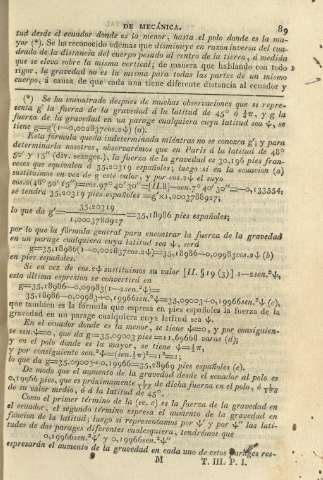 DE MECÁNICA. 89
tud desde el ecuador donde es lo menor, hasta el polo donde es la ma-
yor (*). Se ha reconocido ademas que disminuye en razon inversa del cua-
drado de la distancia del cuerpo pesado al centro de la tierra, á medida
que se eleva sobre la misma vertical; de manera que hablando con todo
rigor, la gravedad no es la misma para todas las partes de un mismo
cuerpo, á causa de que cada una tiene diferente distancia al ecuador y
(*) Se ha encontrado despues de muchas observaciones que si repre-
senta g' la fuerza de la gravedad á la latitud de 45° ó ¼π, y g la
fuerza de la gravedad en un parage cualquiera cuya latitud sea ψ, se
tiene g=g'(1-0,002837cos.2ψ) (a).
Esta fórmula queda indeterminada mientras no se conozca g'; y para
determinarla nosotros, observarémos que en Paris á la latitud de 48°
50' y 15" (div. sexages.), la fuerza de la gravedad es 30,196 pies fran-
ceses que equivalen á 35,20319 españoles; luego si en la ecuacion (a)
sustituimos en vez de g este valor, y por cos.2ψ el suyo
cos.2(48° 50' 15")=cos.97° 40' 30"=[II.8]-sen.7° 40' 30"=-0,133554,
se tendrá 35,20319 pies españoles=g'×1,0003788927;
lo que da g'=35,20319/1,0003788927=35,18986 pies españoles;
por lo que la fórmula general para encontrar la fuerza de la gravedad
en un parage cualquiera cuya latitud sea ψ, será
g=35,18986(1-0,002837cos.2ψ)=35,18986-0,09983cos.2ψ (b)
en pies españoles.
Se en vez de cos.2ψ sustituimos su valor [II. §19 (3)] 1-2sen.²ψ,
esta última expresion se convertirá en
g=35,18986-0,09983(1-2sen.²ψ)=
35,18986-0,09983+0,19966sen.²ψ=35,09003+0,19966sen.²ψ (c),
que tambien es la fórmula que espresa en pies españoles la fuerza de la
gravedad en un parage cualquiera cuya latitud sea ψ.
En el ecuador donde es la menor, se tiene ψ=0, y por consiguien-
te sen.ψ=0, que da g=35,09003 pies=11,69668 varas (d);
y en el polo donde es la mayor, se tiene ψ=½π,
y por consiguiente sen.²ψ=(sen.½π)²=1²=1;
lo que da g=35,09003+0,19966=35,28969 pies españoles (e).
De modo que el aumento de la gravedad desde el ecuador al polo es
0,19966 pies, que es próximamente de dicha fuerza en el polo, ó
de su valor medio, ó á la latitud de 45°.
Como el primer término de la (ec. c) es la fuerza de la gravedad en
el ecuador, el segundo término espresa el aumento de la gravedad en
funcion de la latitud; luego si representamos por ψ' y por ψ" las lati-
tudes de dos parages diferentes cualesquiera, tendrémos que
0,19966sen.²ψ' y 0,19966sen.²ψ"
espresarán el aumento de la gravedad en cada uno de estos parages res-
M T. III. P. I.